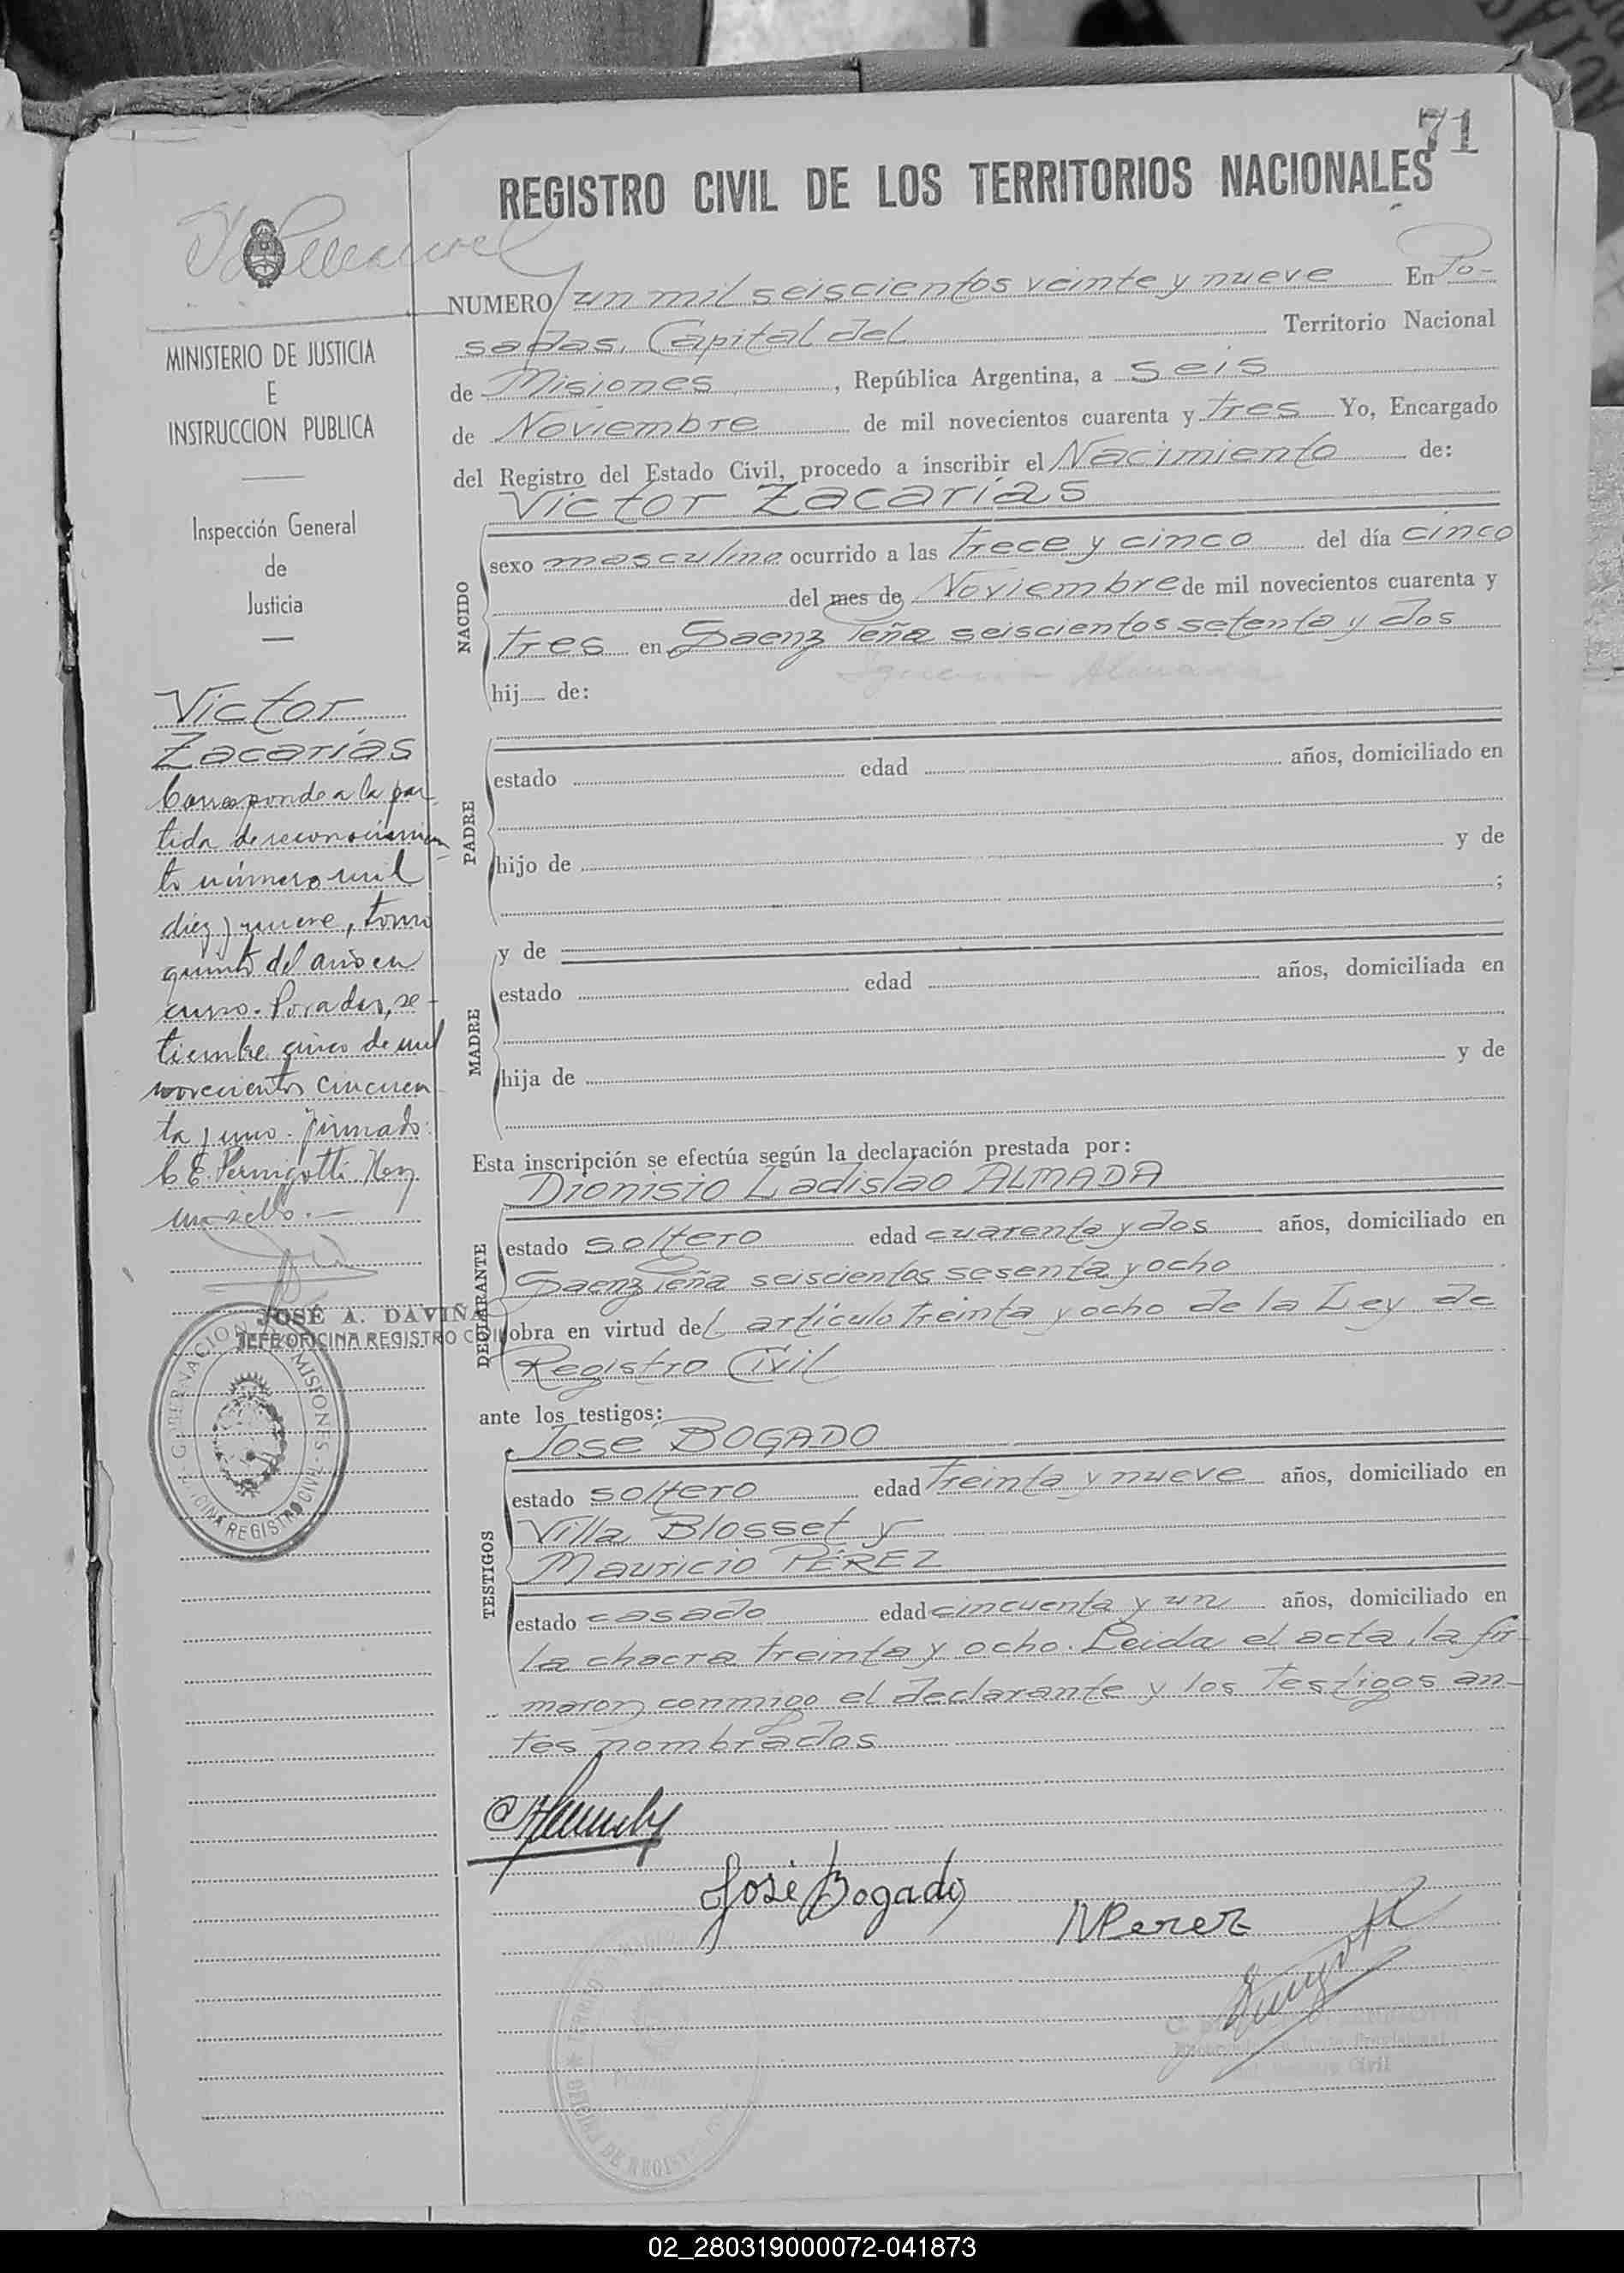 71
REGISTRO CIVIL DE LOS TERRITORIOS NACIONALES
NUMERO un mil seiscientos veinte y nueve En Po-
sadas, Capital del Territorio Nacional
de Misiones, República Argentina, a seis
de Noviembre de mil novecientos cuarenta y tres Yo, Encargado
del Registro del Estado Civil, procedo a inscribir el Nacimiento de:
Victor Zacarías
NACIDO
sexo masculino ocurrido a las trece y cinco del día cinco
del mes de Noviembre de mil novecientos cuarenta y
tres en Saenz Peña seiscientos setenta y dos
hij de:
PADRE
estado edad años, domiciliado en
hijo de y de
;
y de
MADRE
estado edad años, domiciliada en
hija de y de
Esta inscripción se efectúa según la declaración prestada por:
Dionisio Ladislao ALMADA
DECLARANTE
estado soltero edad cuarenta y dos años, domiciliado en
Saenz Peña seiscientos sesenta y ocho
obra en virtud del artículo treinta y ocho de la Ley de
Registro Civil
ante los testigos:
José BOGADO
TESTIGOS
estado soltero edad treinta y nueve años, domiciliado en
Villa Blosset y
Mauricio PÉREZ
estado casado edad cincuenta y un años, domiciliado en
la chacra treinta y ocho. Leida el acta, la fir-
maron conmigo el declarante y los testigos an-
tes nombrados
José Bogado
MPerez
MINISTERIO DE JUSTICIA
E
INSTRUCCION PUBLICA
Inspección General
de
Justicia
Victor
Zacarías
Corresponde a la par-
tida de reconocimien-
to número mil
diez y nueve, tomo
quinto del año en
curso. Posadas, se-
tiembre cinco de mil
novecientos cincuen
ta y uno. Firmado:
C E. Pernigotti. Hay
un sello.-
JOSÉ A. DAVIÑA
JEFE OFICINA REGISTRO CIVIL
GOBERNACION MISIONES
OFICINA REGISTRO CIVIL
02_280319000072-041873